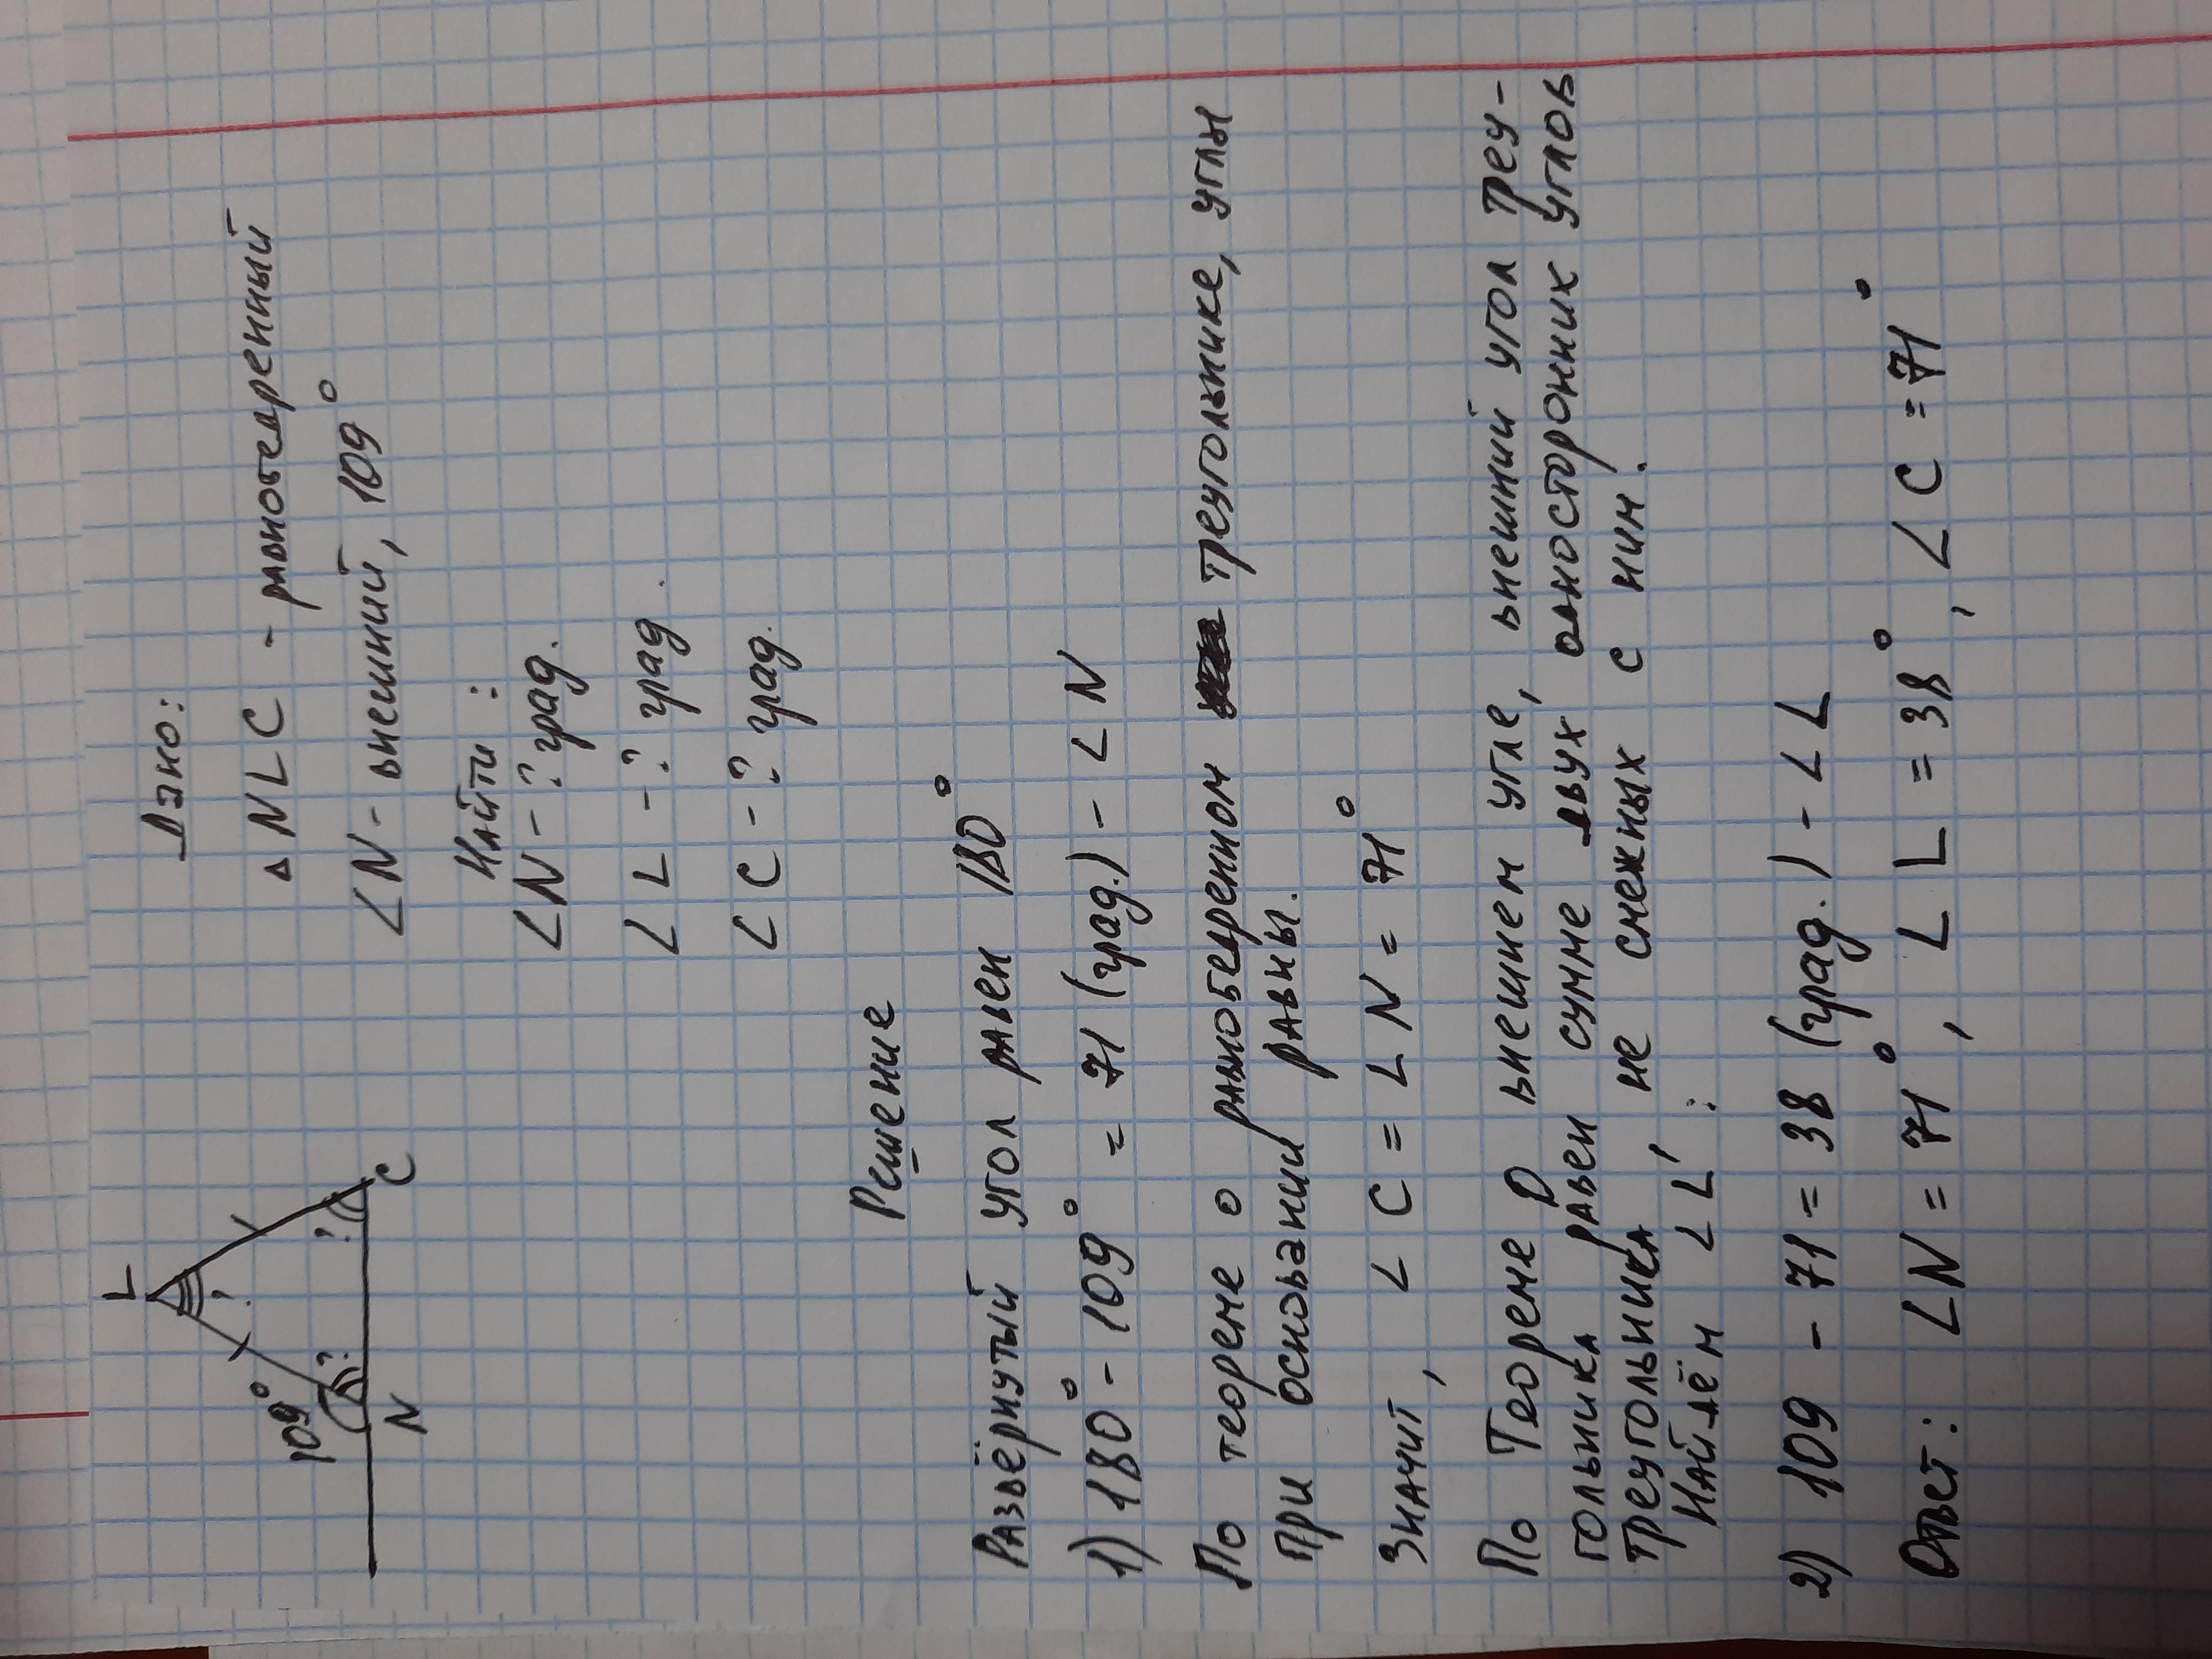 L
109°
?
?
?
N
C
Дано:
△ NLC - равнобедренный
∠N - внешний, 109°
Найти:
∠N - ? град.
∠L - ? град.
∠C - ? град.
Решение
Развёрнутый угол равен 180°
1) 180° - 109° = 71 (град.) - ∠N
По теореме о равнобедренном треугольнике, углы
при основании равны.
Значит, ∠C = ∠N = 71°
По Теореме о внешнем угле, внешний угол треу-
гольника равен сумме двух односторонних углов
треугольника, не смежных с ним.
Найдём ∠L:
2) 109 - 71 = 38 (град.) - ∠L
Ответ: ∠N = 71°, ∠L = 38°, ∠C = 71°